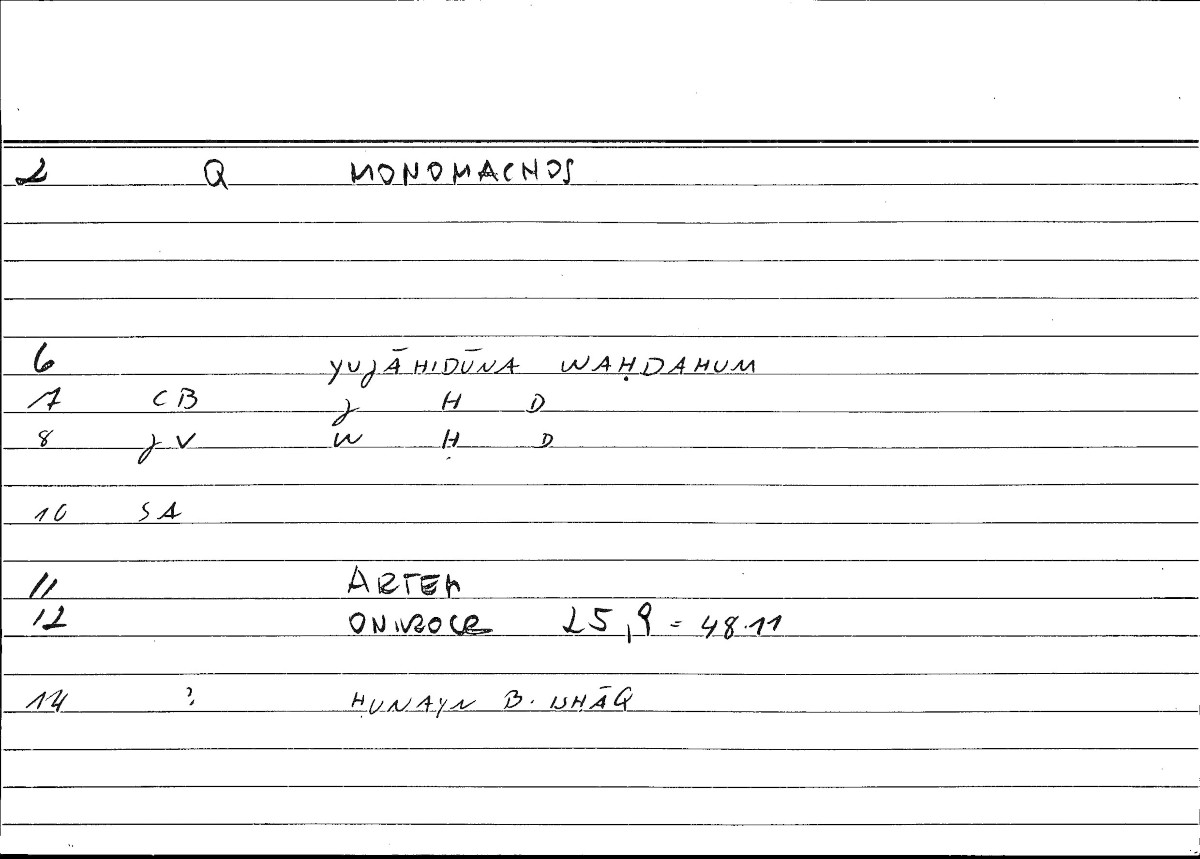 2 Q MONOMACHOS
6 YUJĀHIDŪNA WAḤDAHUM
7 CB J H D
8 JV W Ḥ D
10 SA
11 ARTEM
12 ONIROCR 25,9 = 48.11
14 ? ḤUNAYN B. ISHĀQ